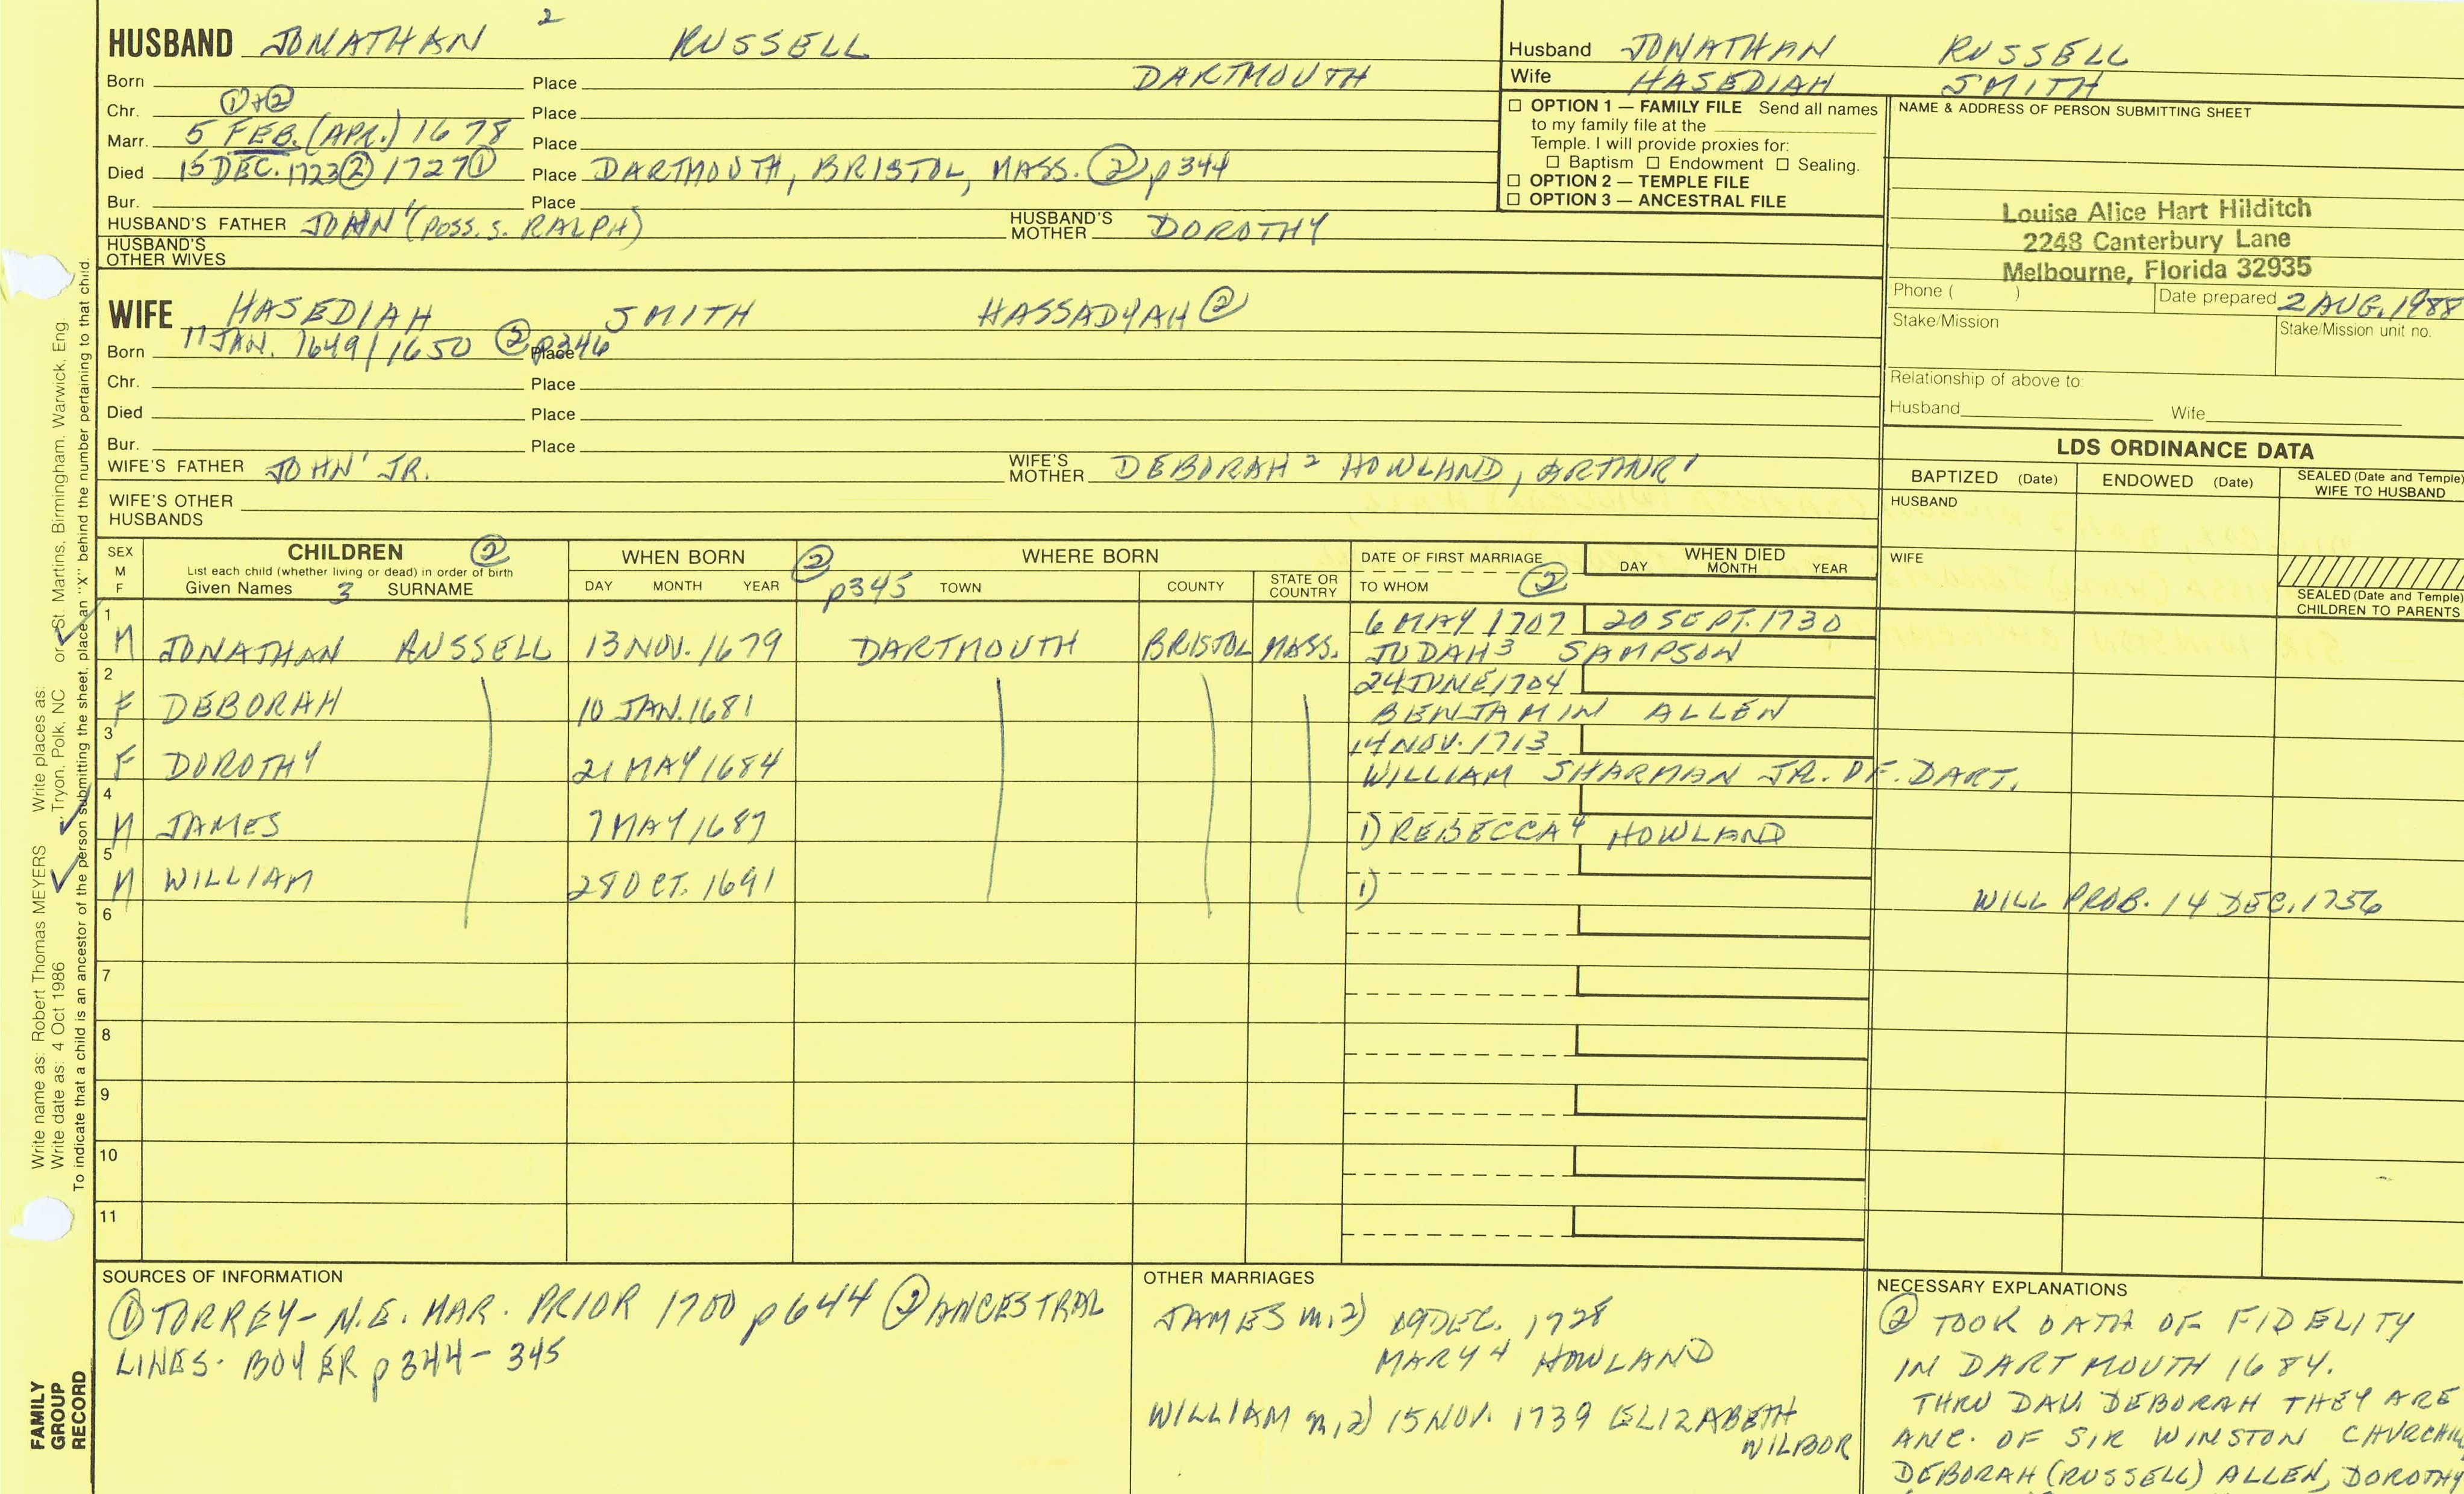 HUSBAND JONATHAN 2 RUSSELL
Born Place DARTMOUTH
Chr. ①+② Place
Marr. 5 FEB. (APR.) 1678 Place
Died 15 DEC. 1723② 1727① Place DARTMOUTH, BRISTOL, MASS. ② p344
Bur. Place
HUSBAND'S FATHER JOHN 1 (POSS. S. RALPH) HUSBAND'S MOTHER DOROTHY
HUSBAND'S OTHER WIVES
WIFE HASEDIAH SMITH HASSADYAH②
Born 11 JAN. 1649/1650 ② p346 Place
Chr. Place
Died Place
Bur. Place
WIFE'S FATHER JOHN 1 JR. WIFE'S MOTHER DEBORAH 2 HOWLAND, ARTHUR 1
WIFE'S OTHER HUSBANDS
Husband JONATHAN RUSSELL
Wife HASEDIAH SMITH
☐ OPTION 1 — FAMILY FILE Send all names
to my family file at the
Temple. I will provide proxies for:
☐ Baptism ☐ Endowment ☐ Sealing.
☐ OPTION 2 — TEMPLE FILE
☐ OPTION 3 — ANCESTRAL FILE
NAME & ADDRESS OF PERSON SUBMITTING SHEET
Louise Alice Hart Hilditch
2248 Canterbury Lane
Melbourne, Florida 32935
Phone ( ) Date prepared 2 AUG. 1988
Stake/Mission Stake/Mission unit no.
Relationship of above to:
Husband Wife
LDS ORDINANCE DATA
BAPTIZED (Date) ENDOWED (Date) SEALED (Date and Temple) WIFE TO HUSBAND
HUSBAND
WIFE
SEALED (Date and Temple) CHILDREN TO PARENTS
SEX M F
CHILDREN ②
List each child (whether living or dead) in order of birth
Given Names 3 SURNAME
WHEN BORN
DAY MONTH YEAR
② p345 WHERE BORN
TOWN COUNTY STATE OR COUNTRY
DATE OF FIRST MARRIAGE
TO WHOM ②
WHEN DIED
DAY MONTH YEAR
1 6 MAY 1707 20 SEPT. 1730
M JONATHAN RUSSELL 13 NOV. 1679 DARTMOUTH BRISTOL MASS. JUDAH 3 SAMPSON
2 24 JUNE 1704
F DEBORAH 10 JAN. 1681 BENJAMIN ALLEN
3 14 NOV. 1713
F DOROTHY 21 MAY 1684 WILLIAM SHARMAN JR. OF. DART.
4
M JAMES 7 MAY 1687 1) REBECCA 4 HOWLAND
5
M WILLIAM 28 OCT. 1691 1) WILL PROB. 14 DEC. 1756
6
7
8
9
10
11
SOURCES OF INFORMATION
① TORREY- N.E. MAR. PRIOR 1700 p644 ② ANCESTRAL
LINES- BOYER p344-345
OTHER MARRIAGES
JAMES m. 2) DEC. 1728
MARY 4 HOWLAND
WILLIAM m. 2) 15 NOV. 1739 ELIZABETH
WILBOR
NECESSARY EXPLANATIONS
② TOOK OATH OF FIDELITY
IN DARTMOUTH 1684.
THRU DAU. DEBORAH THEY ARE
ANC. OF SIR WINSTON CHURCHILL
DEBORAH (RUSSELL) ALLEN, DOROTHY
Write name as: Robert Thomas MEYERS Write places as: Tryon, Polk, NC or St. Martins, Birmingham, Warwick, Eng.
Write date as: 4 Oct 1986
To indicate that a child is an ancestor of the person submitting the sheet, place an "X" behind the number pertaining to that child.
FAMILY
GROUP
RECORD